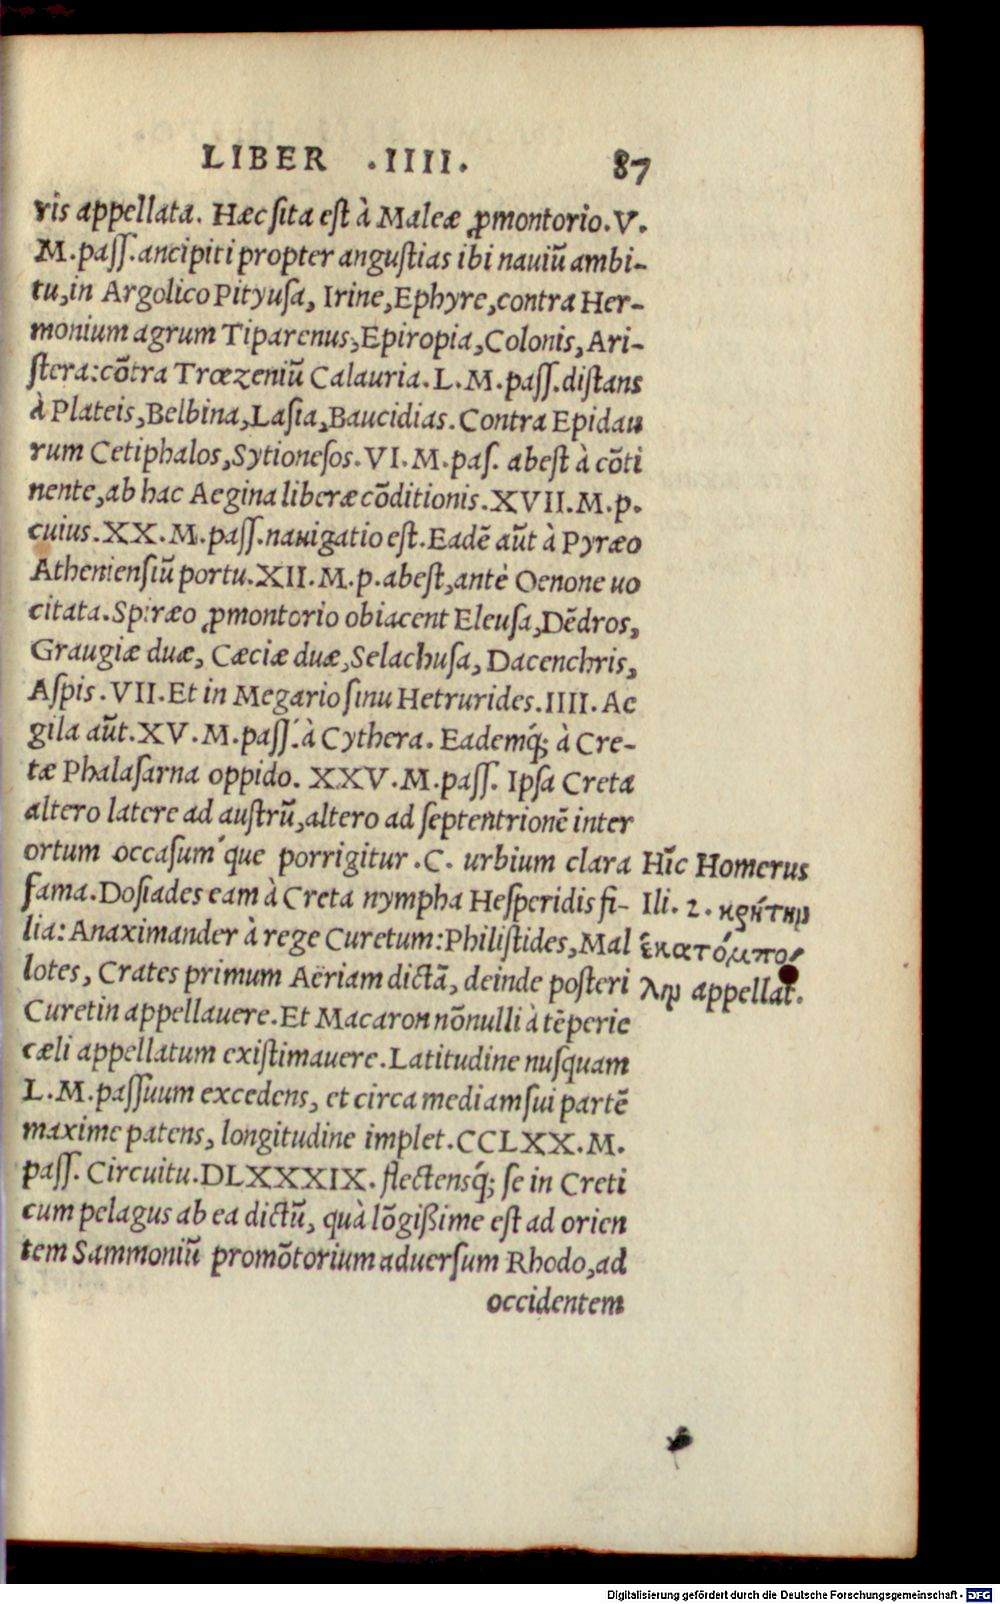 LIBER .IIII. 87
ris appellata. Hæc sita est à Maleæ ꝓmontorio.V.
M.pass.ancipiti propter angustias ibi nauiũ ambi-
tu,in Argolico Pityusa, Irine,Ephyre,contra Her-
monium agrum Tiparenus,Epiropia,Colonis,Ari-
stera:cõtra Trœzeniũ Calauria.L.M.pass.distans
à Plateis,Belbina,Lasia,Baucidias.Contra Epidau
rum Cetiphalos,Sytionesos.VI.M.pas. abest à cõti
nente,ab hac Aegina liberæ cõditionis.XVII.M.p.
cuius.XX.M.pass.nauigatio est.Eadẽ aũt à Pyræo
Atheniensiũ portu.XII.M.p.abest,antè Oenone uo
citata.Spiræo ꝓmontorio obiacent Eleusa,Dẽdros,
Graugiæ duæ, Cæciæ duæ,Selachusa, Dacenchris,
Aspis.VII.Et in Megario sinu Hetrurides.IIII.Ae
gila aũt.XV.M.pass.à Cythera. Eademq́; à Cre-
tæ Phalasarna oppido. XXV.M.pass. Ipsa Creta
altero latere ad austrũ,altero ad septentrionẽ inter
ortum occasum que porrigitur.C. urbium clara
fama.Dosiades eam à Creta nympha Hesperidis fi-
lia:Anaximander à rege Curetum:Philistides,Mal
lotes, Crates primum Aëriam dictã, deinde posteri
Curetin appellauere.Et Macaron nõnulli à tẽperie
cæli appellatum existimauere.Latitudine nusquam
L.M.passuum excedens, et circa mediam sui partẽ
maxime patens, longitudine implet.CCLXX.M.
pass. Circuitu.DLXXXIX. flectensq́; se in Creti
cum pelagus ab ea dictũ, quà lõgißime est ad orien
tem Sammoniũ promõtorium aduersum Rhodo,ad
occidentem
Hĩc Homerus
Ili. 2. κρήτην
ἑκατόμπο-
λιν appellat.
Digitalisierung gefördert durch die Deutsche Forschungsgemeinschaft - DFG